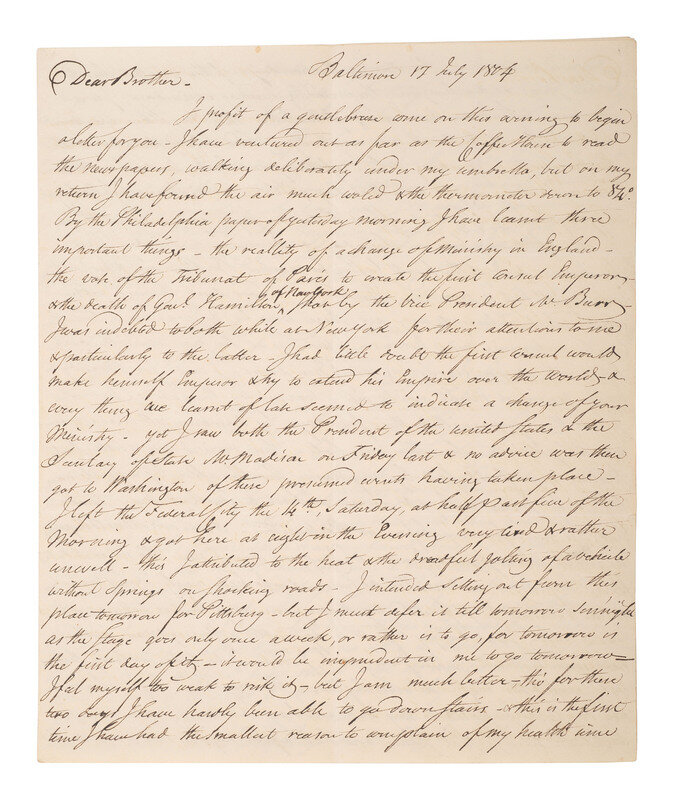 Baltimore 17 July 1804
Dear Brother -
I profit of a gentle breeze come on this evening to begin
a letter for you - I have ventured out as far as the Coffee House to read
the newspapers, walking deliberately under my umbrella, but on my
return I have found the air much cooled & the thermometer down to 84°.
By the Philadelphia paper of yesterday morning I have learnt three
important things - the reallity of a change of Ministry in England -
the vote of the Tribunat of Paris to create the first Consul Emperor -
& the death of Genl. Hamilton of New York, shot by the vice President Mr Burr -
I was indebted to both while at New York for their attentions to me
& particularly to the latter - I had little doubt the first consul would
make himself Emperor & try to extend his Empire over the World, &
every thing we learnt of late seemed to indicate a change of your
Ministry - yet I saw both the President of the united States & the
Secretary of State Mr Madison on Friday last & no advice was then
got to Washington of these presumed events having taken place -
I left the Federal City the 14th, Saturday, at half past five of the
Morning & got here at eight in the Evening very tired & rather
unwell - this I attributed to the heat & the dreadful jolting of a vehicle
without Springs on shocking roads - I intended setting out from this
place tomorrow for Pittsburg - but I must defer it till tomorrow sennight
as the Stage goes only once a week, or rather is to go, for tomorrow is
the first day of it - it would be imprudent in me to go tomorrow -
I feel myself too weak to risk it - but I am much better - tho' for these
two days I have hardly been able to go down stairs - & this is the first
time I have had the smallest reason to complain of my health since